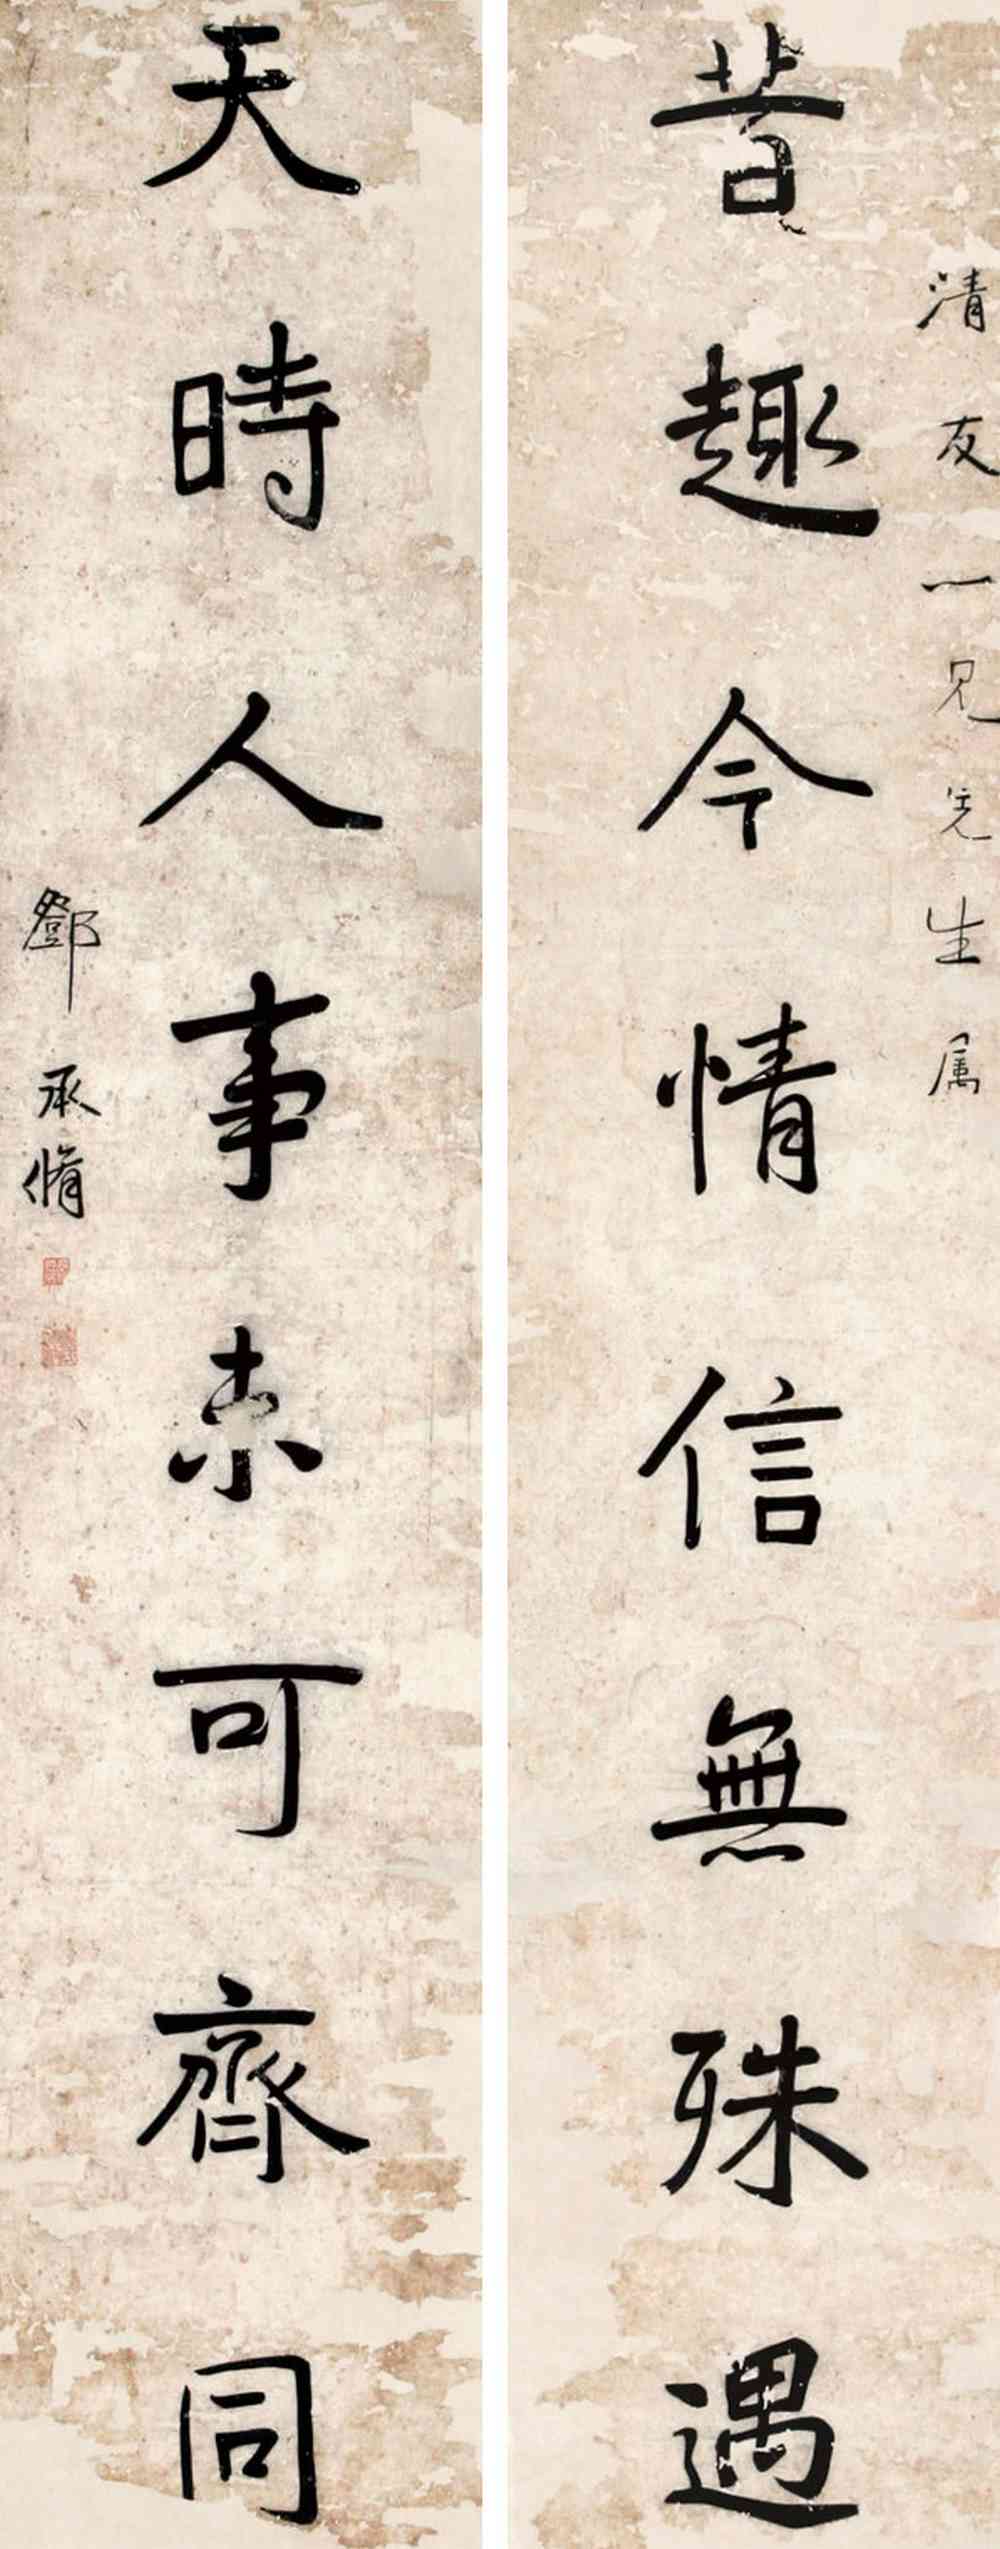 清友一兄先生属
昔趣今情信無殊遇
天時人事未可齊同
鄧承脩